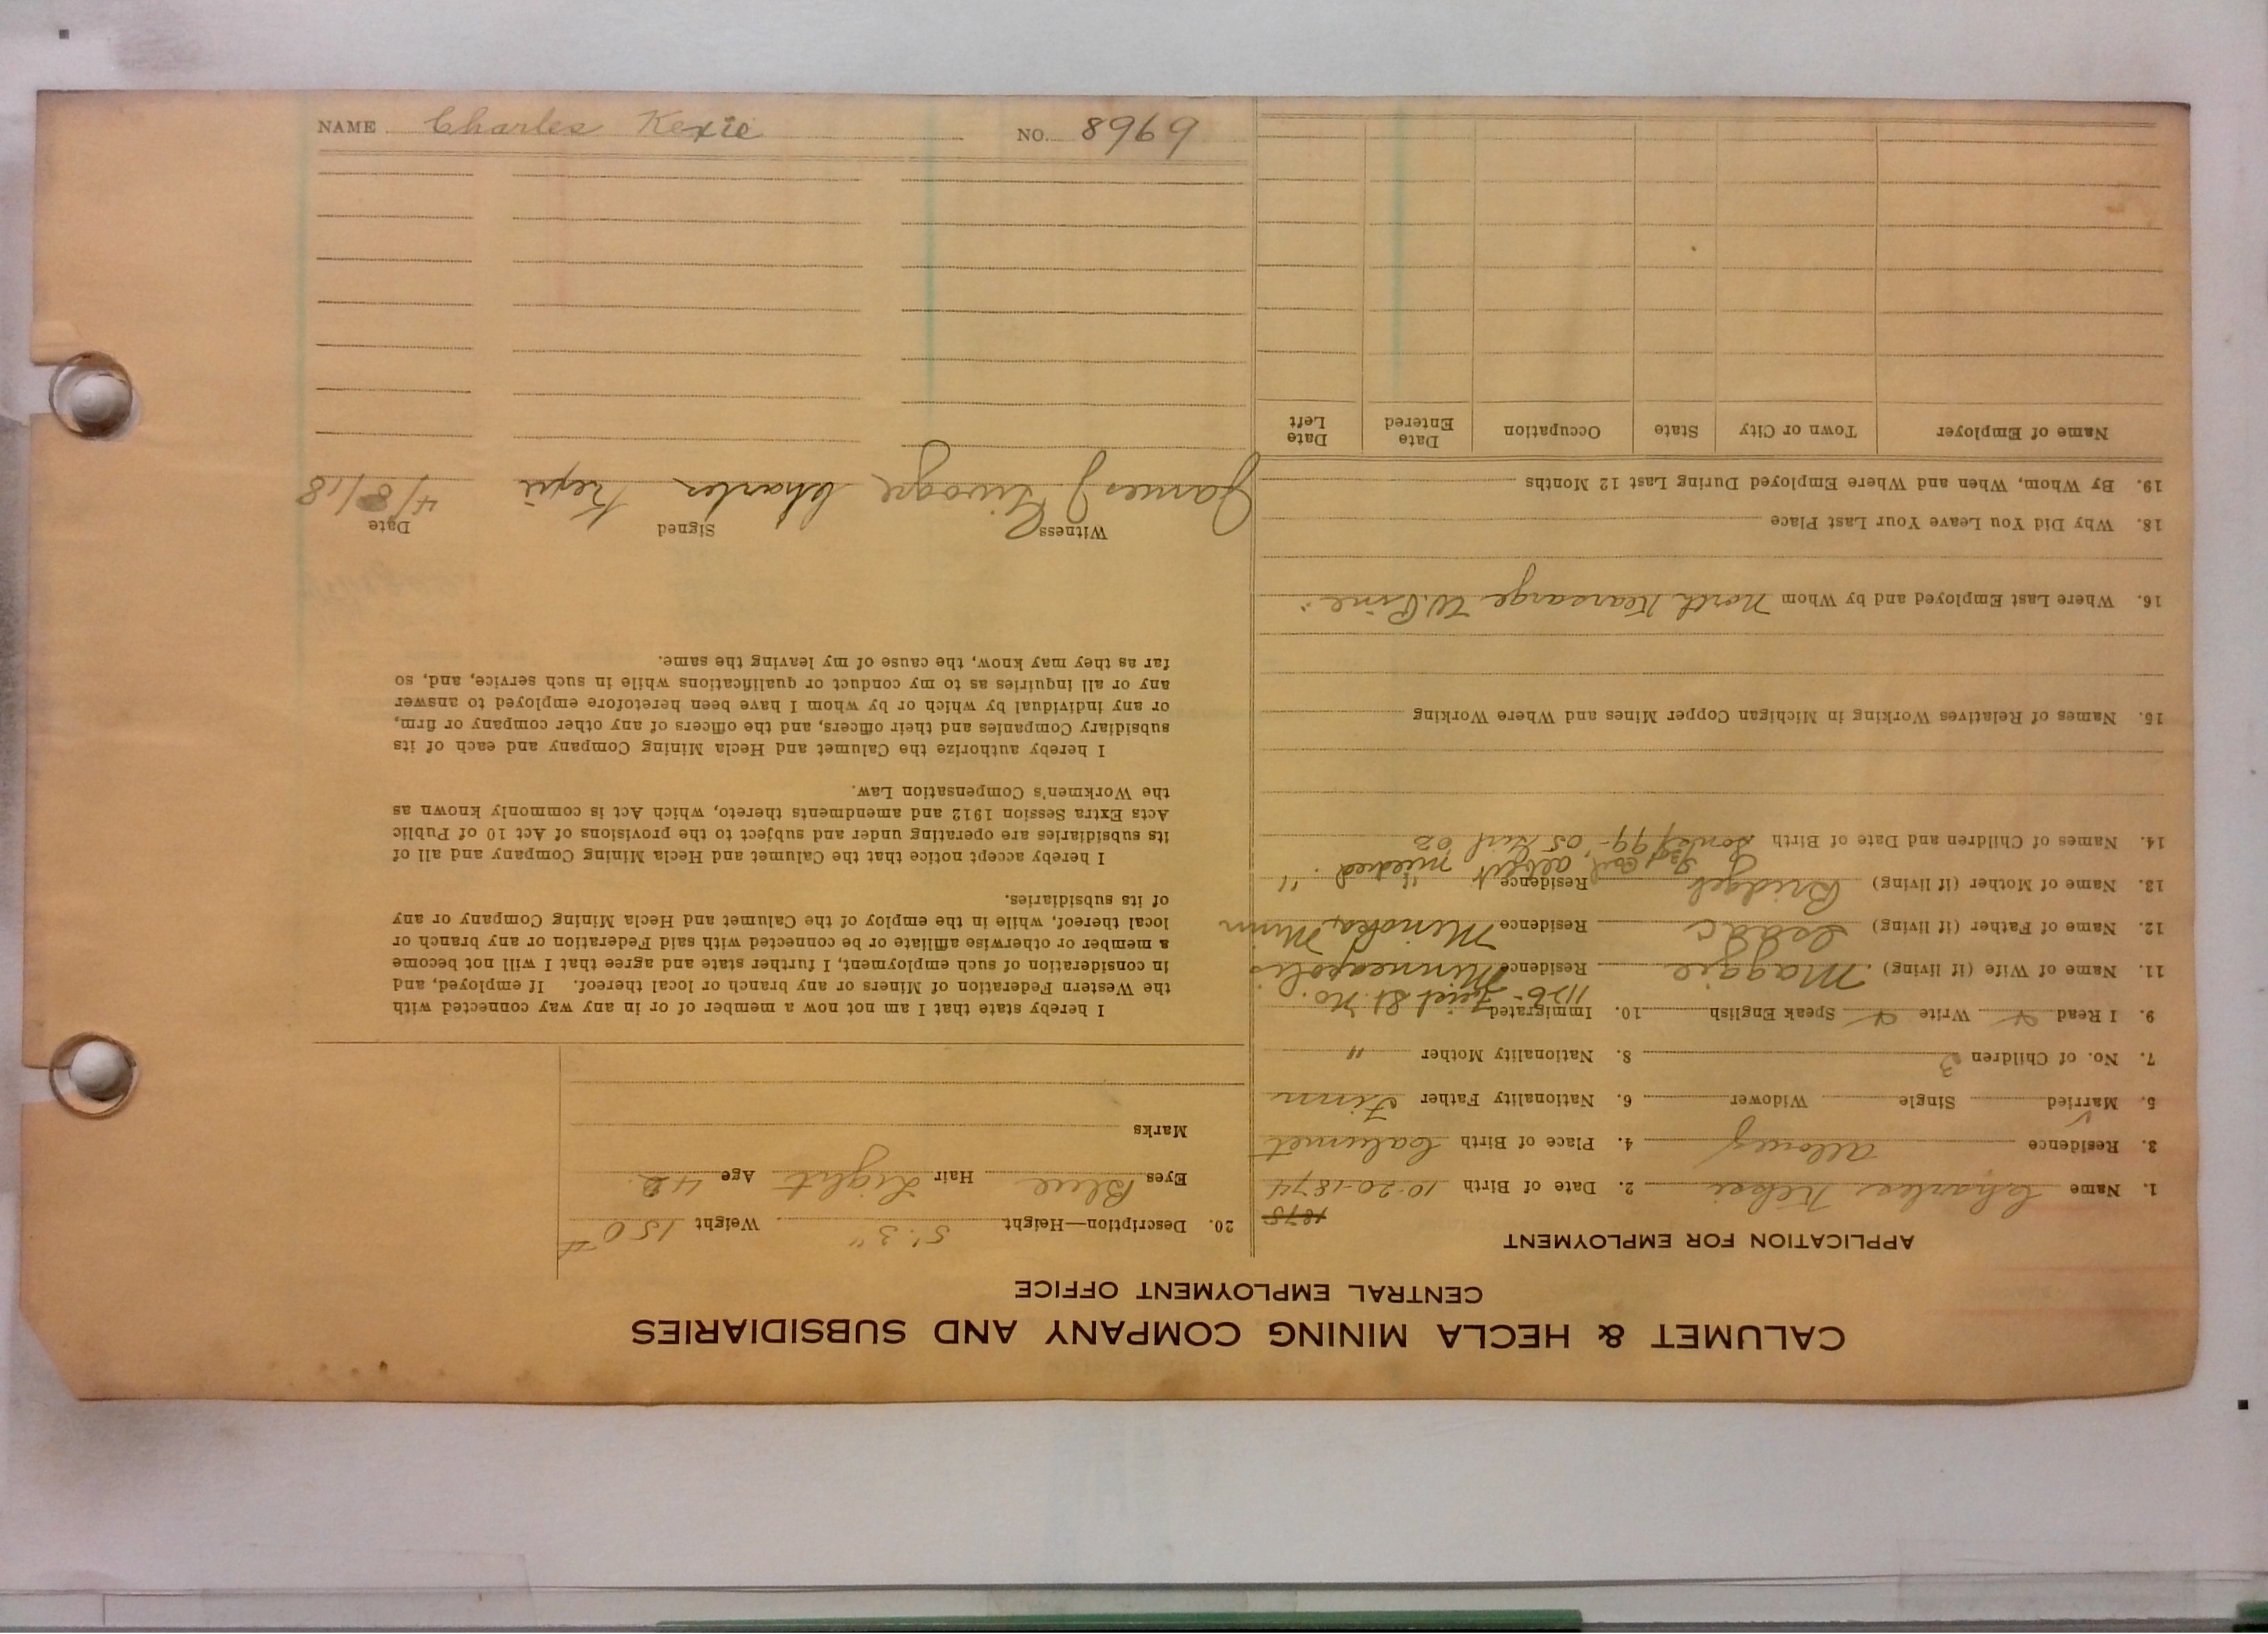 CALUMET & HECLA MINING COMPANY AND SUBSIDIARIES
CENTRAL EMPLOYMENT OFFICE
APPLICATION FOR EMPLOYMENT
1875
1. Name Charles Keksi 2. Date of Birth 10-20-1874
3. Residence Allouez 4. Place of Birth Calumet
5. Married Single Widower 6. Nationality Father Finn
7. No. of Children 3 8. Nationality Mother "
9. I Read Write Speak English 10. Immigrated
1126- St. No.
11. Name of Wife (if living) Maggie Residence Minneapolis
12. Name of Father (if living) Isaac Residence Minn
13. Name of Mother (if living) Bridget Residence " "
Albert Mildred
14. Names of Children and Date of Birth 99- 05 Girl 02
15. Names of Relatives Working in Michigan Copper Mines and Where Working
16. Where Last Employed and by Whom North Kearsarge
18. Why Did You Leave Your Last Place
19. By Whom, When and Where Employed During Last 12 Months
Name of Employer Town or City State Occupation Date Entered Date Left
20. Description—Height 5' 3" Weight 150 #
Eyes Blue Hair Light Age 42
Marks
I hereby state that I am not now a member of or in any way connected with
the Western Federation of Miners or any branch or local thereof. If employed, and
in consideration of such employment, I further state and agree that I will not become
a member or otherwise affiliate or be connected with said Federation or any branch or
local thereof, while in the employ of the Calumet and Hecla Mining Company or any
of its subsidiaries.
I hereby accept notice that the Calumet and Hecla Mining Company and all of
its subsidiaries are operating under and subject to the provisions of Act 10 of Public
Acts Extra Session 1912 and amendments thereto, which Act is commonly known as
the Workmen's Compensation Law.
I hereby authorize the Calumet and Hecla Mining Company and each of its
subsidiary Companies and their officers, and the officers of any other company or firm,
or any individual by which or by whom I have been heretofore employed to answer
any or all inquiries as to my conduct or qualifications while in such service, and, so
far as they may know, the cause of my leaving the same.
Witness Signed Date
James J Charles Kexie 4/8/18
NAME Charles Kexie NO. 8969